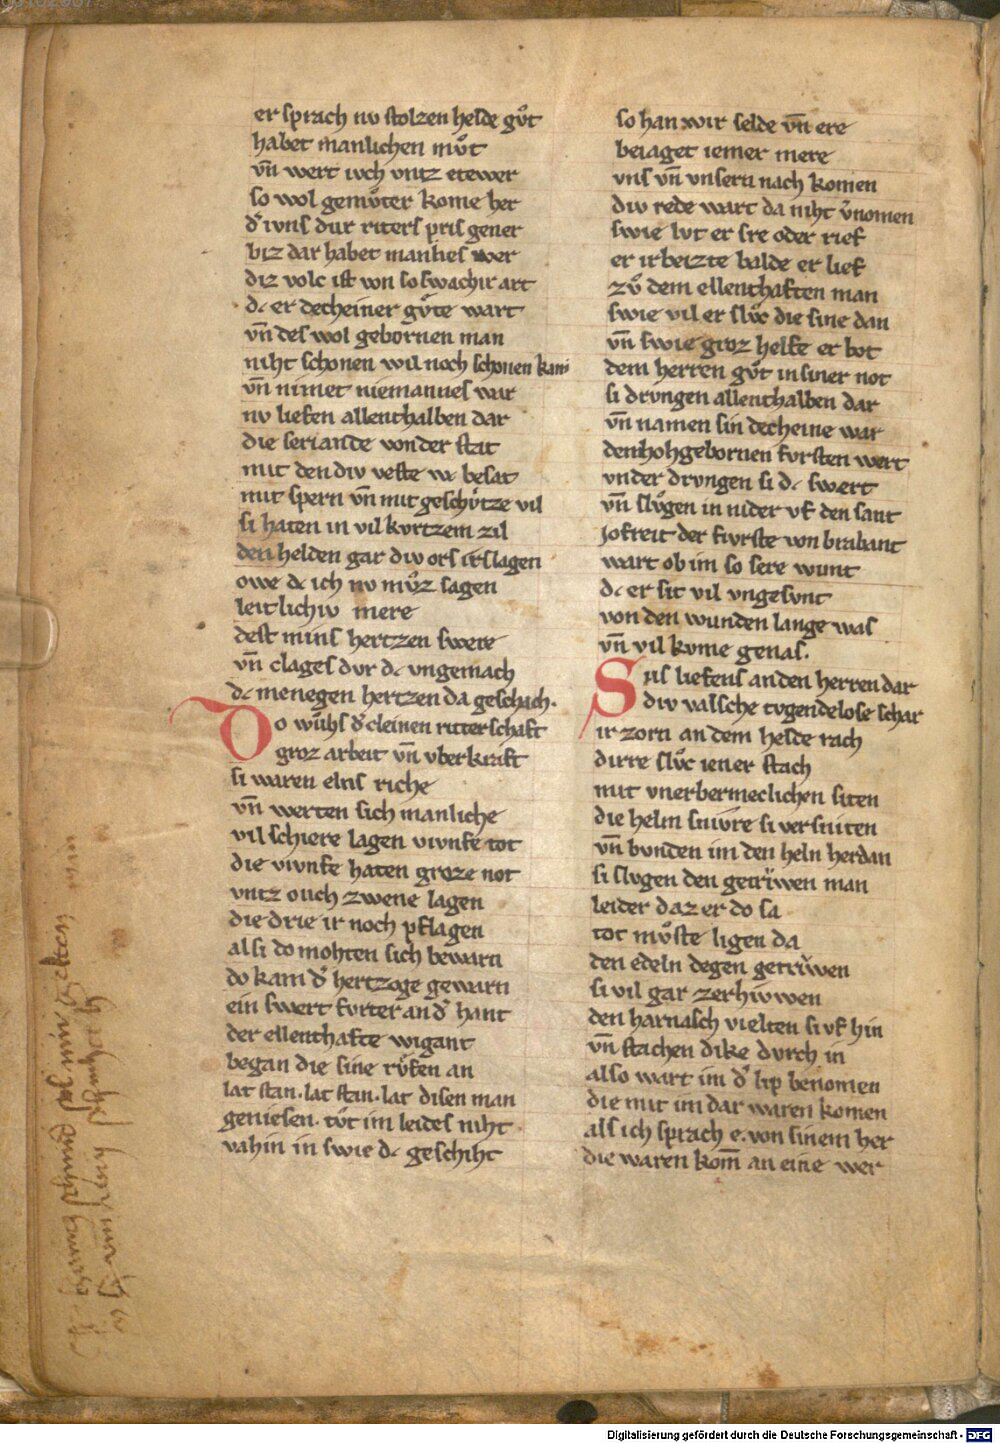 er sprach nv stolzen helde gůt
habet manlichen můt
vn̄ wert ivch vntz etewer
so wol gemůter kome her
d͛ ivns dur riters pris gener
biz dar habet manlies wer
diz volc ist von so swachir art
dc er decheiner gůte wart
vn̄ des wol gebornen man
niht schonen wil noch schonen kan
vn̄ nimet niemannes war
nv liefen allenthalben dar
die seriande von der stat
mit den div veste wc besat
mit spern vn̄ mit geschůtze vil
si haten in vil kvrtzem zil
den helden gar div ors irslagen
owe dc ich nv můz sagen
leitlichiv mere
dest mins hertzen swere
vn̄ clages dvr dc vngemach
dc menegen hertzen da geschach.
Do wůhs d͛ cleinen ritterschaft
groz arbeit vn̄ vberkraft
si waren elns riche
vn̄ werten sich manliche
vil schiere lagen vivnfe tot
die vivnfe haten groze not
vntz ouch zwene lagen
die drie ir noch pflagen
als si do mohten sich bewarn
do kam d͛ hertzoge gewarn
ein swert fvrter an d͛ hant
der ellenthafte wigant
began die sine růfen an
lat stan. lat stan. lat disen man
geniesen. tůt im leides niht
vahin in swie dc geschiht
so han wir selde vn̄ ere
beiaget iemer mere
vns vn̄ vnsern nach komen
div rede wart da niht v̄nomen
swie lvt er sre oder rief
er irbeizte balde er lief
zů dem ellenthaften man
swie vil er slůc die sine dan
vn̄ swie groz helfe er bot
dem herren gůt in siner not
si drvngen allenthalben dar
vn̄ namen sin decheine war
den hohgebornen fvrsten wert
vnder drvngen si dc swert
vn̄ slůgen in nider vf den sant
Jofreit der fivrste von brabant
wart ob im so sere wunt
dc er sit vil vngesvnt
von den wunden lange was
vn̄ vil kvme genas.
Svs liefens an den herren dar
div valsche tvgendelose schar
ir zorn an dem helde rach
dirre slůc iener stach
mit vnerbermeclichen siten
die helm snivre si versniten
vn̄ bvnden im den heln herdan
si slvgen den getriwen man
leider daz er do sa
tot můste ligen da
den edeln degen getriwen
si vil gar zerhiwen
den harnasch vielten si vf hin
vn̄ stachen dike dvrch in
also wart im d͛ lip benomen
die mit im dar waren komen
als ich sprach e. von sinem her
die waren kom̄ an eine wer
Digitalisierung gefördert durch die Deutsche Forschungsgemeinschaft - DFG